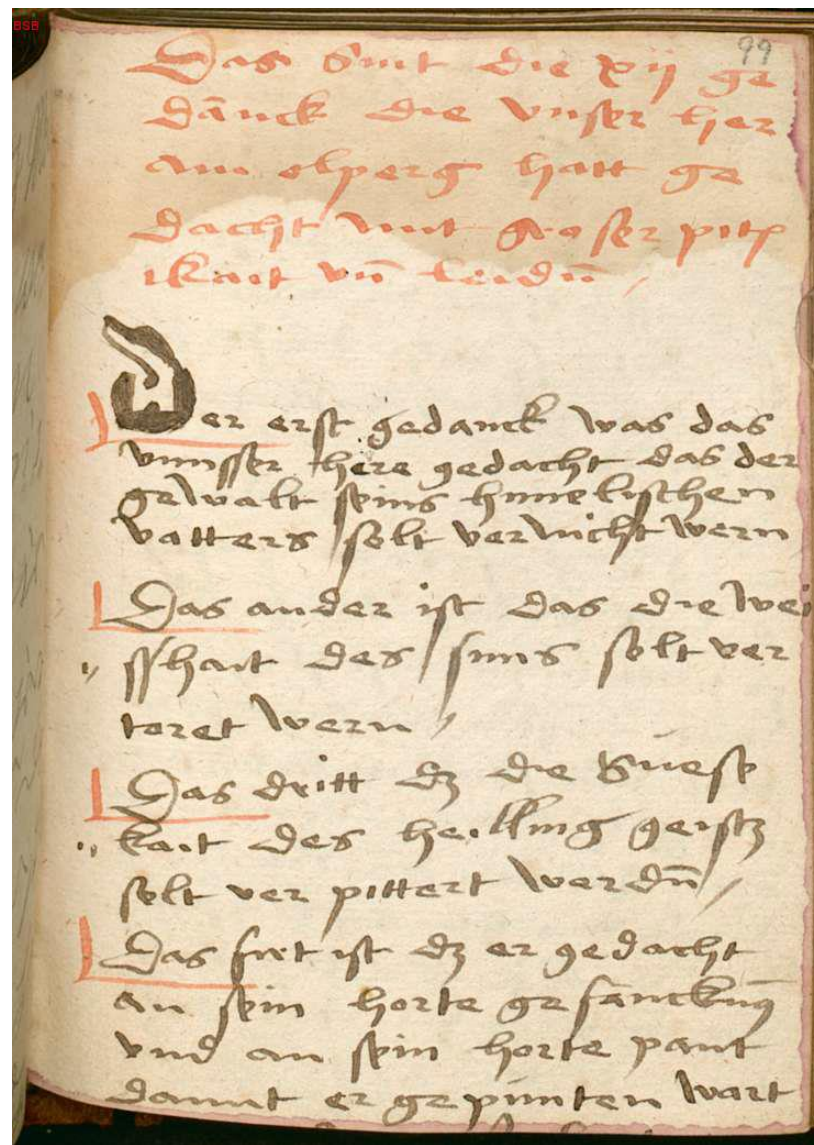 BSB
99
Das Sint die xij ge
dānck die vnser her
am olperg hatt ge
dacht mit groser pitt
ikait vn̄ leidn̄ /
Der erst gedanck was das
vnnsser here gedacht das der
gewalt seins himelischen
vatters solt vernicht wern
Das ander ist das die wei
sshait des suns solt ver
toret wern /
Das dritt dz die Suese
kait des heilling geistz
solt ver pittert werdn̄ /
Das firt ist dz er gedacht
an sein horte gefancknus
vnd an sein horte pant
damit er gepunten wart